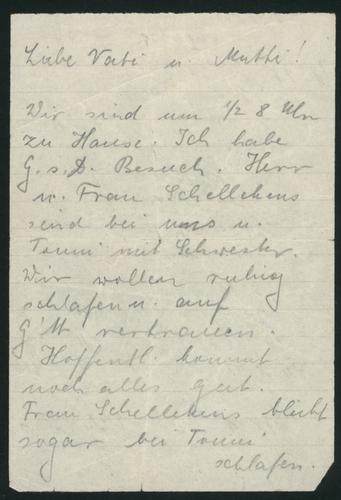 Liebe Vati u. Mutti!
Wir sind um 1/2 8 Uhr
zu Hause. Ich habe
G.s.D. Besuch. Herr
u. Frau Schellekens
sind bei uns u.
Tommi mit Schwester.
Wir wollen ruhig
schlafen u. auf
G'tt vertrauen.
Hoffentl. kommt
noch alles gut.
Frau Schellekens bleibt
sogar bei Tommi
schlafen.